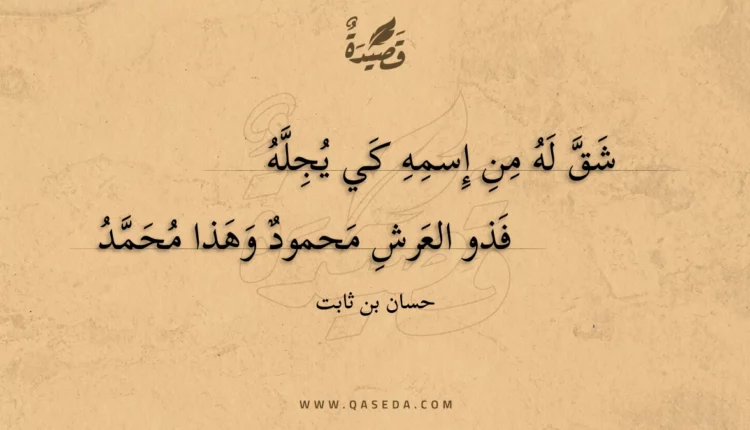 قَصِيْدَةٌ
شَقَّ لَهُ مِنِ إِسمِهِ كَي يُجِلَّهُ
فَذو العَرشِ مَحمودٌ وَهَذا مُحَمَّدُ
حسان بن ثابت
WWW.QASEDA.COM